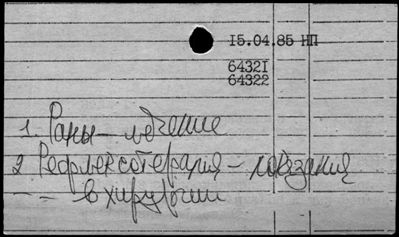 15.04.85 НП
64321
64322
1. Раны – лечение
2. Рефлексотерапия – показания
– – в хирургии